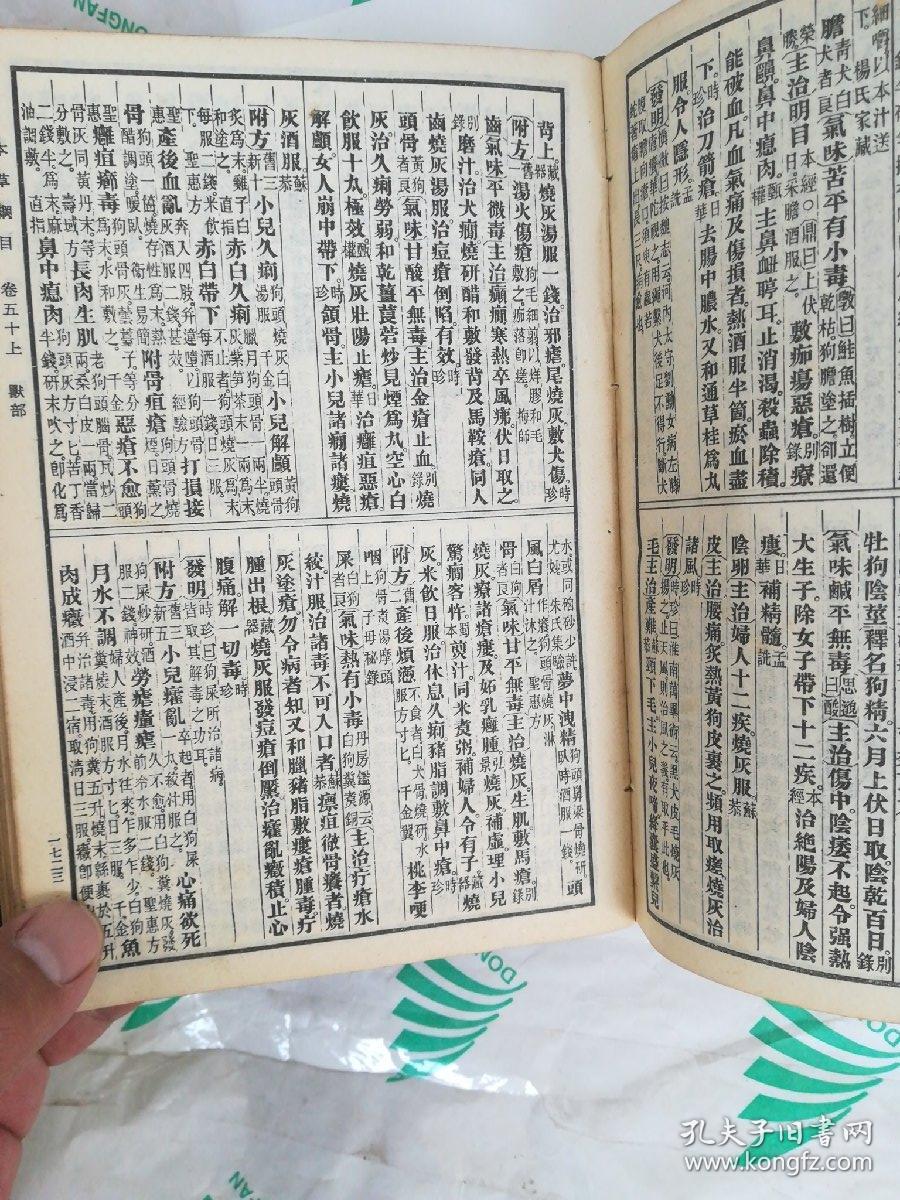 細嚼以本汁送
下。楊氏家藏
膽青犬白犬者良氣味苦平有小毒
主治明目敷痂瘍惡瘡療
鼻齆鼻中瘜肉主鼻衄聤耳止消渴殺蟲除積
能破血凡血氣痛及傷損者熱酒服半箇瘀血盡
下時珍治刀箭瘡日華去腸中膿水又和通草桂爲丸
服令人隱形孟詵
牡狗陰莖釋名狗精六月上伏日取陰乾百日別錄
氣味鹹平無毒思邈曰酸主治傷中陰痿不起令强熱
大生子除女子帶下十二疾本經治絶陽及婦人陰
㾪日華補精髓孟詵
陰卵主治婦人十二疾燒灰服蘇恭
皮主治腰痛炙熱黃狗皮裹之頻用取瘥燒灰治
諸風時珍
本草綱目 卷五十上 獸部
背上藏器燒灰湯服一錢治邪瘧尾燒灰敷犬傷時珍
附方舊一湯火傷瘡狗毛細翦以烊膠和毛敷之痂落即瘥梅師
齒氣味平微毒主治癲癇寒熱卒風痱伏日取之
別錄磨汁治犬癇燒研醋和敷發背及馬鞍瘡同人
齒燒灰湯服治痘瘡倒陷有效時珍
頭骨黃狗者良氣味甘酸平無毒主治金瘡止血別錄燒
灰治久痢勞弱和乾薑莨菪炒見煙爲丸空心白
飲服十丸極效甄權燒灰壯陽止瘧日華治癰疽惡瘡
解顱女人崩中帶下時珍頷骨主小兒諸癇諸瘻燒
灰酒服蘇恭
附方舊三新十小兒久痢狗頭燒灰白湯服小兒解顱黃狗頭骨炙爲末雞子白和塗之直指赤白久痢臘月狗頭骨一兩半燒灰紫笋茶一兩爲末每服二錢米飲下聖惠方赤白帶下不止者狗頭燒灰爲末每酒服一錢日三服
產後血亂奔入四肢并違墮以狗頭骨灰酒服二錢甚效經驗方打損接骨狗頭一箇燒存性爲末熱醋調塗暖臥衛生易簡附骨疽瘡狗頭骨燒煙日薰之聖惠癰疽癤毒狗頭骨灰蕓薹子等分爲末水和敷之千金惡瘡不愈狗頭骨灰同黃丹末等分敷之壽域方長肉生肌
鼻中瘜肉狗頭灰方寸匕苦丁香半錢研末吹之即化爲
水或同硇砂少許尤妙朱氏集驗夢中洩精狗頭鼻梁骨燒研臥時酒服一錢頭
風白屑作癢狗頭骨燒灰淋汁沐之聖惠方
骨白狗者良氣味甘平無毒主治燒灰生肌敷馬瘡別錄
燒灰療諸瘡瘻及妬乳癰腫弘景燒灰補虛理小兒
驚癇客忤蜀本煎汁同米煮粥補婦人令有子藏器燒
灰米飲日服治休息久痢豬脂調敷鼻中瘡時珍
附方舊二產後煩懣不食者白犬骨燒研水服方寸匕千金翼桃李哽
咽狗骨煮湯摩頭上子母秘錄
屎白狗者良氣味熱有小毒丹房鑑源云白狗糞煮銅主治疔瘡水
絞汁服治諸毒不可入口者蘇恭瘭疽徹骨癢者燒
灰塗瘡勿令病者知又和臘豬脂敷瘻瘡腫毒疔
腫出根藏器燒灰服發痘瘡倒黶治霍亂癥積止心
腹痛解一切毒時珍
發明時珍曰狗屎所治諸病皆取其解毒之功耳
附方舊三新五小兒霍亂卒起者用白狗屎一丸絞汁服之心痛欲死狗屎炒研酒服二錢神效勞瘧瘴瘧久不愈用白狗糞燒灰發前冷水服二錢聖惠方
月水不調婦人產後月水往來乍多乍少白狗糞燒末酒服方寸匕日三服千金魚
肉成癥并治諸毒用狗糞五升燒末綿裹於五升酒中浸二宿取清日三服癥即便出
一七二三
孔夫子旧书网
www.kongfz.com
DONGFAN